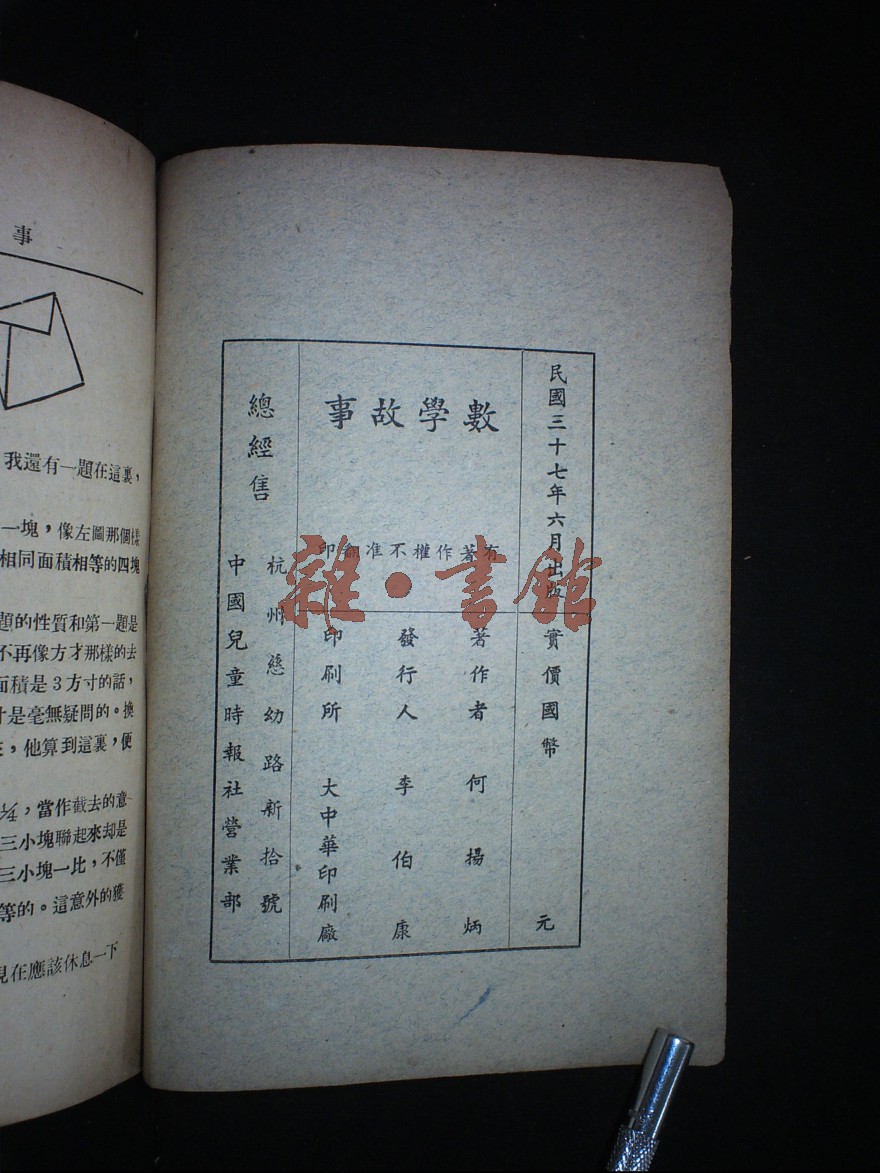 民國三十七年六月出版
實價國幣 元
數學故事
有著作權不准翻印
著作者 何揚炳
發行人 李伯康
印刷所 大中華印刷廠
總經售
杭州慈幼路新拾號
中國兒童時報社營業部
雜·書館
事
我還有一題在這裏,
一塊,像左圖那個樣
相同面積相等的四塊
題的性質和第一題是
不再像方才那樣的去
面積是3方寸的話,
寸是毫無疑問的。換
,他算到這裏,便
,當作截去的意
三小塊聯起來却是
三小塊一比,不僅
等的。這意外的獲
現在應該休息一下